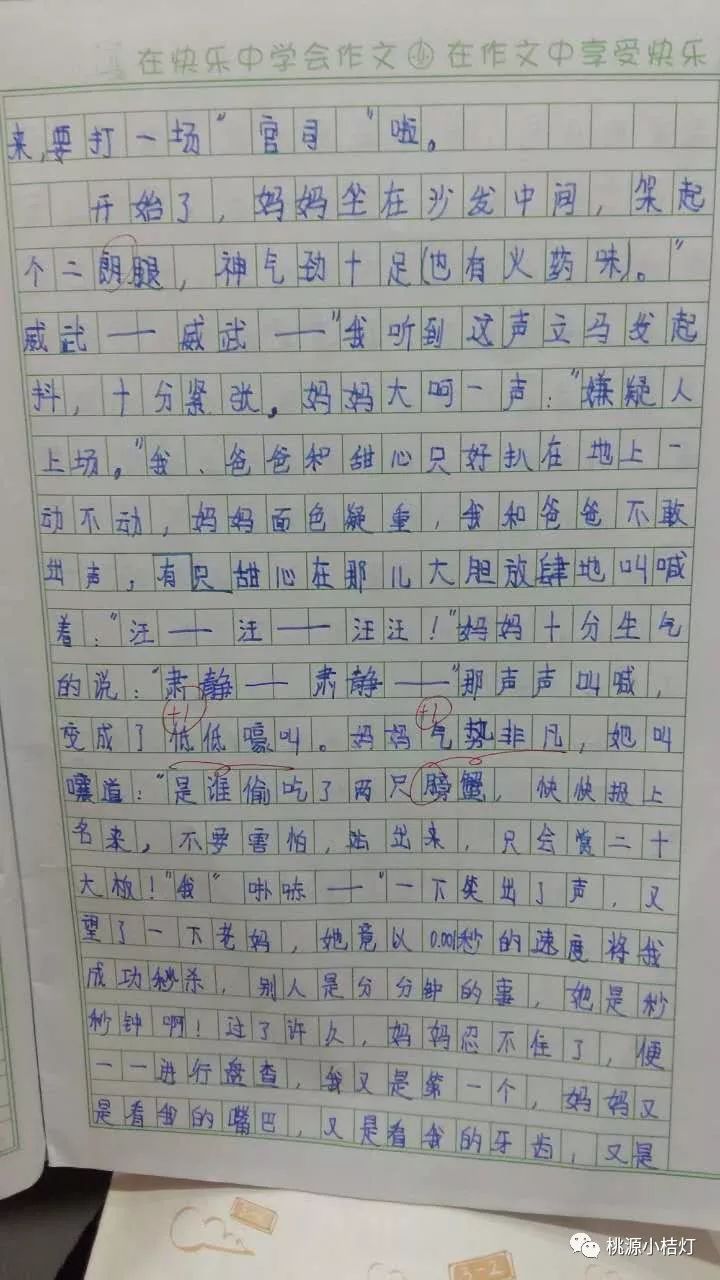 在快乐中学会作文 小 在作文中享受快乐
来,要打一场"官司"啦。
开始了,妈妈坐在沙发中间,架起
个二朗腿,神气劲十足(也有火药味)。"
威武——威武——"我听到这声立马发起
抖,十分紧张。妈妈大呵一声:"嫌疑人
上场。"我、爸爸和甜心只好扒在地上一
动不动,妈妈面色疑重,我和爸爸不敢
出声,有只甜心在那儿大胆放肆地叫喊
着:"汪——汪——汪汪!"妈妈十分生气
的说:"肃静——肃静——"那声声叫喊,
+1 +1
变成了低低嚎叫。妈妈气势非凡,她叫
嚷道:"是谁偷吃了两只螃蟹,快快报上
名来,不要害怕,站出来,只会赏二十
大板!"我"噗哧——"一下笑出了声,又
望了一下老妈,她竟以0.001秒的速度将我
成功秒杀,别人是分分钟的事,她是秒
秒钟啊!过了许久,妈妈忍不住了,便
一一进行盘查,我又是第一个,妈妈又
是看我的嘴巴,又是看我的牙齿,又是
3-2
桃源小桔灯